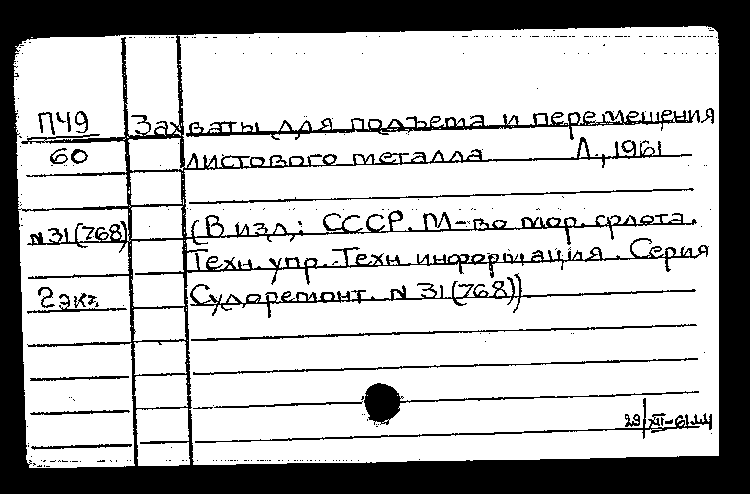 П49 Захваты для подъема и перемещения
60 листового металла Л., 1961
N31(768) (В изд,: СССР. М-во мор. флота.
Техн. упр. Техн. информация. Серия
2экз Судоремонт. N 31(768))
29/XII-61